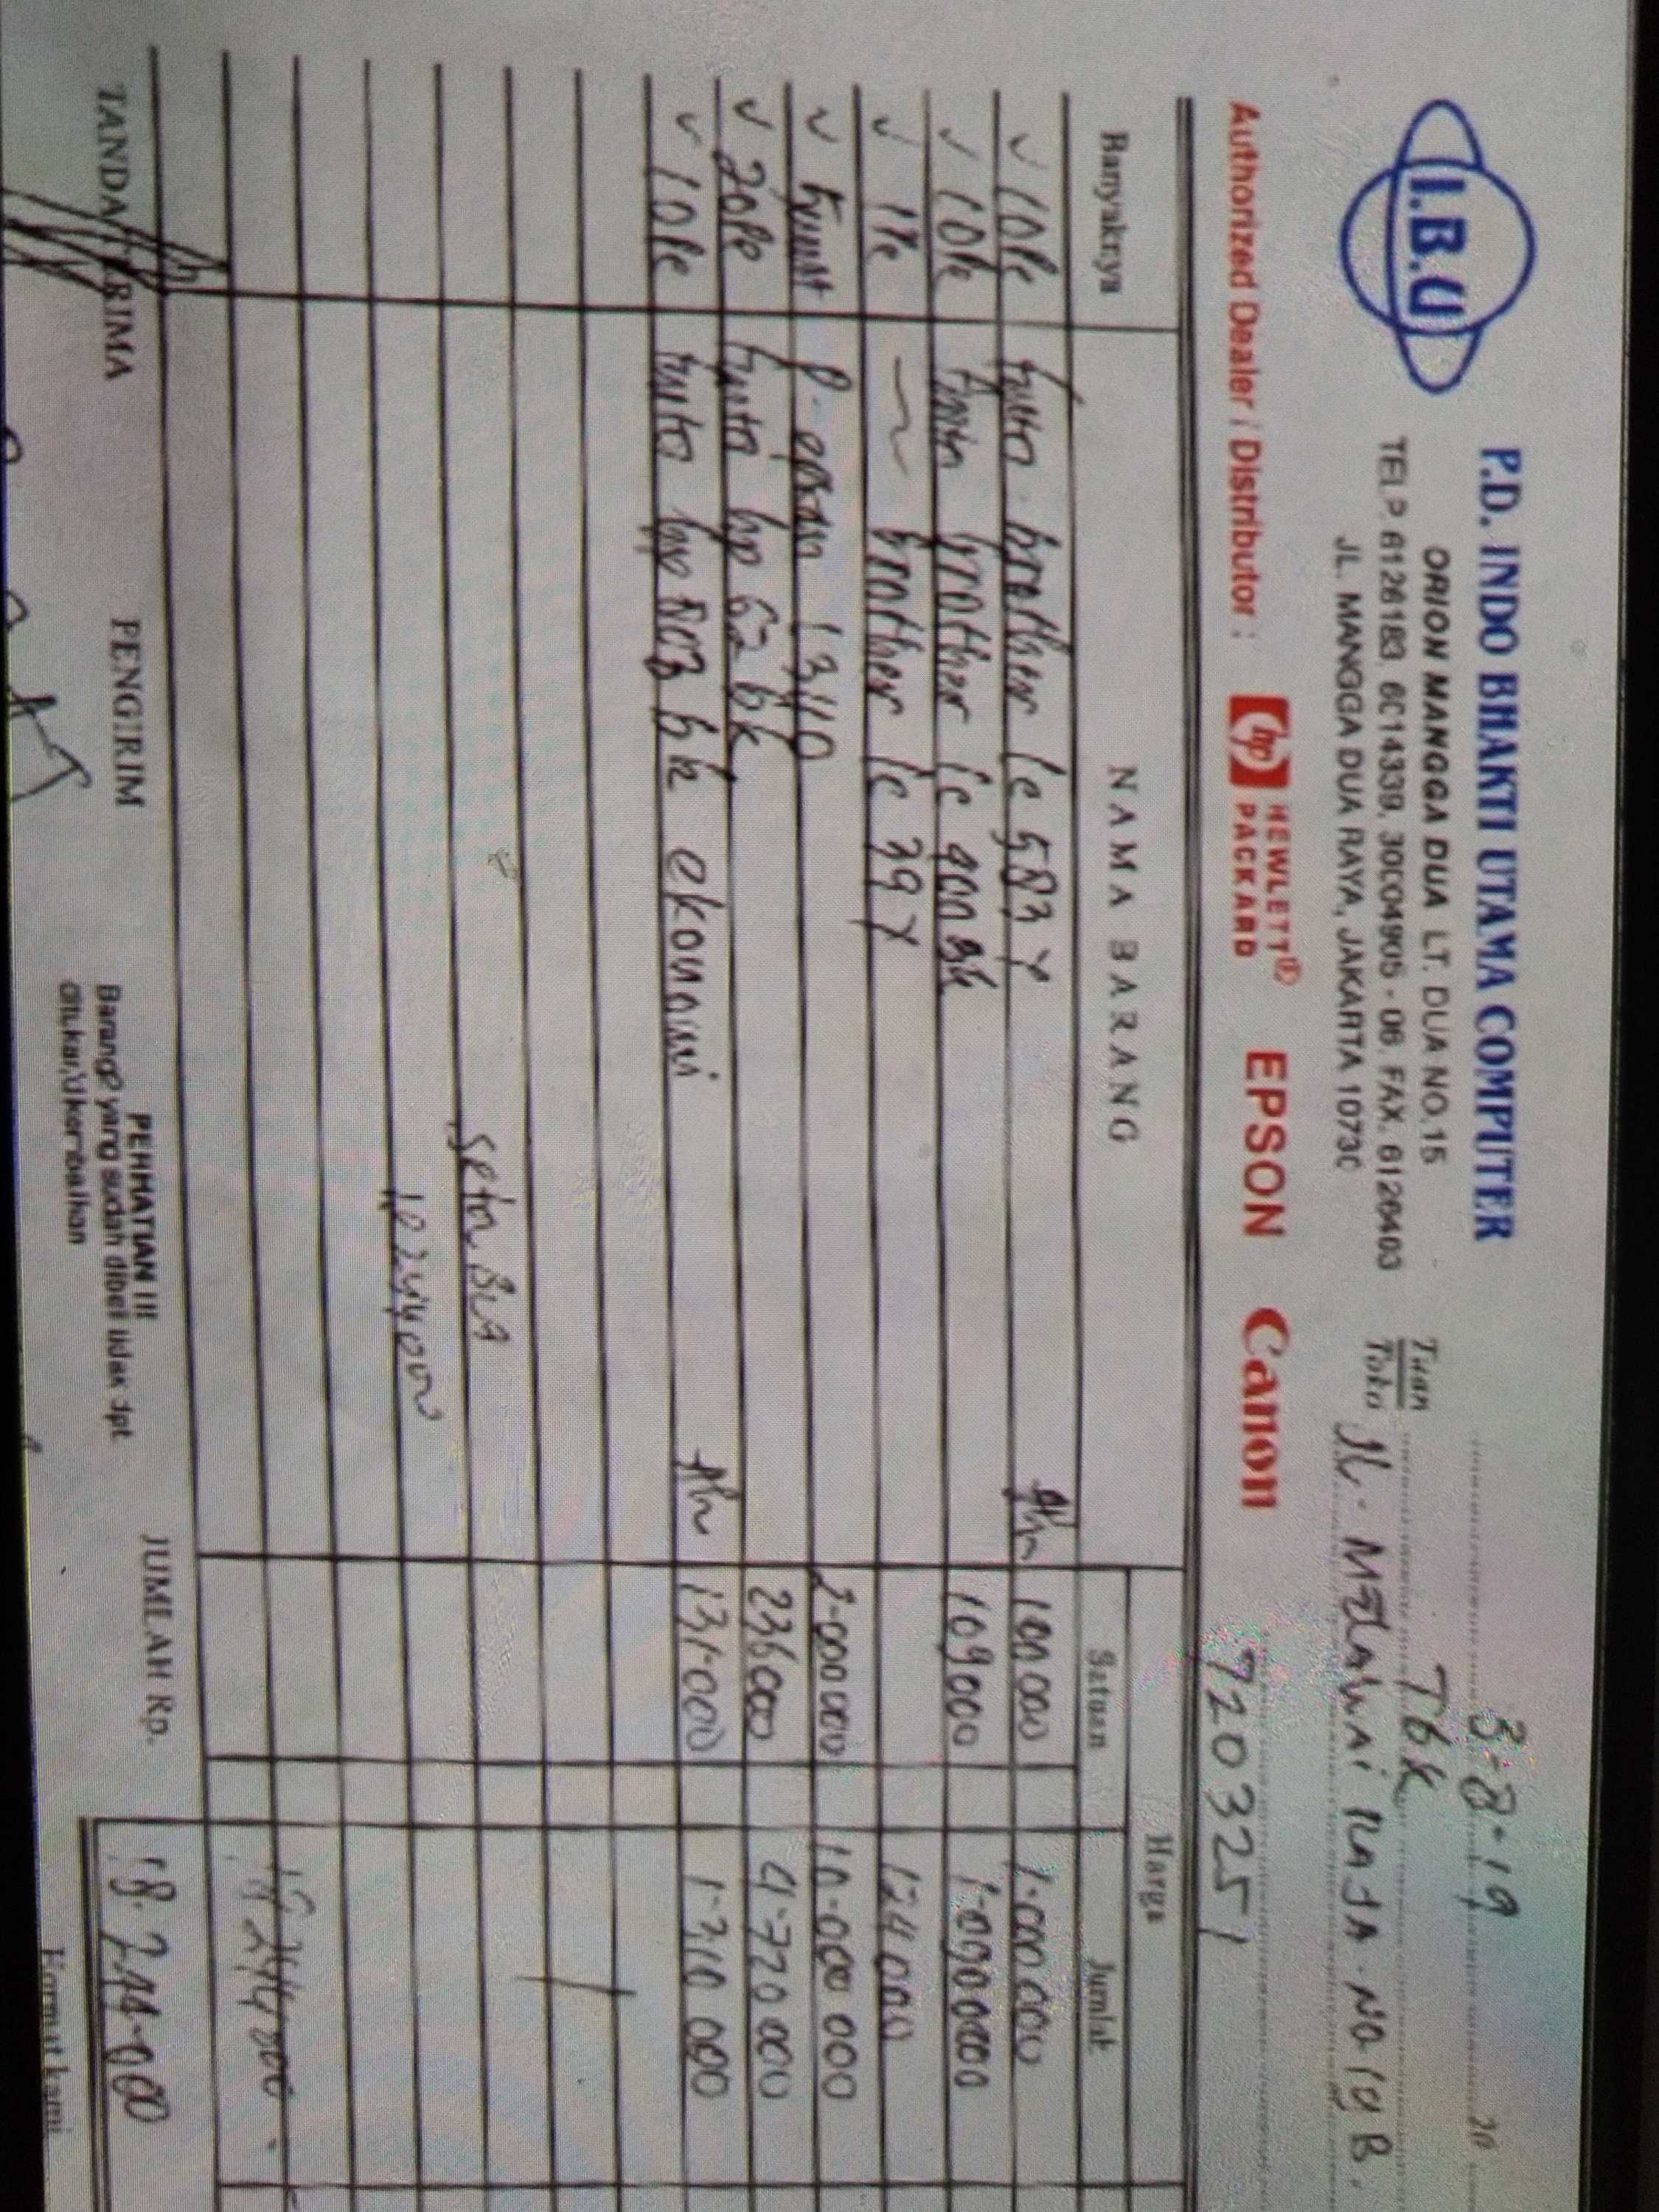 I.B.U
P.D. INDO BHAKTI UTAMA COMPUTER
ORION MANGGA DUA LT. DUA NO.15
TELP. 6126183, 6014339, 30004905 - 06. FAX. 6126403
JL. MANGGA DUA RAYA, JAKARTA 10730
3-8-19 20
Tuan TbK
Toko JL. MELAWAI RAJA. NO 19 B.
7203251
Authorized Dealer / Distributor : hp HEWLETT® PACKARD EPSON Canon
Banyaknya NAMA BARANG Harga
Satuan Jumlah
10Pc tinta brother lc 583 Y 100 000 1.000.000
10Pc tinta brother lc 400 Bk 109000 1.090 000
1Pc brother lc 39 Y 124 000
5 unit P. epson L3110 2.000 000 10.000 000
20Pc tinta hp 62 bk 236000 4.720 000
10Pc tinta hp 803 bk ekonomi 131.000 1.310 000
18 244 000
TANDA TERIMA PENGIRIM PERHATIAN !!! JUMLAH Rp. 18.244.000
Barang² yang sudah dibeli tidak dpt
ditukar/dikembalikan
Hormat kami